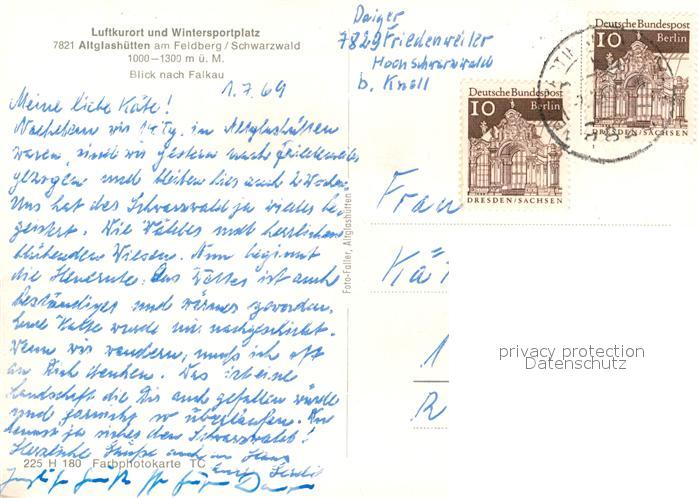 Luftkurort und Wintersportplatz
7821 Altglashütten am Feldberg / Schwarzwald
1000–1300 m ü. M.
Blick nach Falkau
1.7.69
Meine liebe Käte!
Nachdem wir 14 Tg. in Altglashütten
waren, sind wir gestern nach Friedenweiler
gezogen und bleiben hier noch 2 Wochen.
Uns hat der Schwarzwald ja wieder be-
geistert. Die Wälder mit herrlichen
blühenden Wiesen. Nun beginnt
die Heuernte. Das Wetter ist auch
beständiger und wärmer geworden.
Karte wurde mir nachgeschickt.
Wenn wir wandern, muß ich oft
an Dich denken. Das ist eine
Landschaft die Dir auch gefallen würde
und garnicht so überlaufen. Du
kennst ja sicher den Schwarzwald!
Herzliche Grüße auch an Hans
225 H 180 Farbphotokarte TC
Foto-Faller, Altglashütten
Daiger
7829 Friedenweiler
Hochschwarzwald
b. Knöll
Deutsche Bundespost
10 Berlin
DRESDEN/SACHSEN
Deutsche Bundespost
10 Berlin
DRESDEN/SACHSEN
Frau
Kä
1
R
privacy protection
Datenschutz